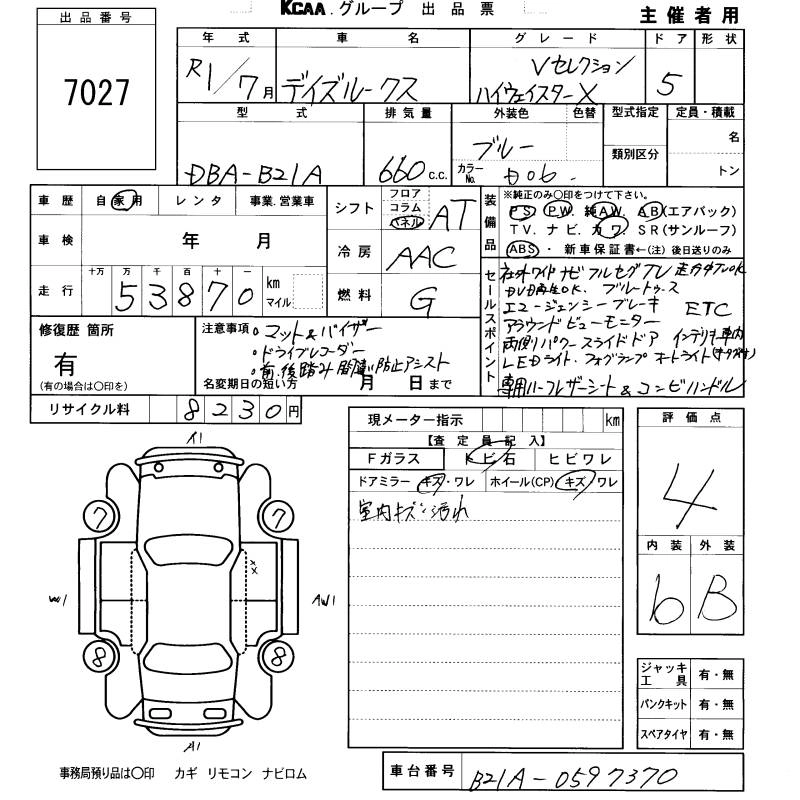 KCAA.グループ 出品票
主催者用
出品番号
7027
年式 車名 グレード ドア 形状
R1/7月 デイズルークス Vセレクション
ハイウェイスターX 5
型式 排気量 外装色 色替 型式指定 定員・積載
DBA-B21A 660c.c. ブルー 類別区分 名
カラーNo. トン
車歴 自家用 レンタ 事業.営業車
車検 年 月
走行 十万 万 千 百 十 一
53870 km マイル
シフト フロア コラム パネル AT
冷房 AAC
燃料 G
装備品 ※純正のみ〇印をつけて下さい。
PS. PW. 純AW. AB(エアバック)
TV. ナビ. カワ. SR(サンルーフ)
ABS・ 新車保証書←(注) 後日送りのみ
セールスポイント
社外ワイドナビフルセグTV 走行中TVOK
DVD再生OK. ブルートゥース
エマージェンシーブレーキ ETC
アラウンドビューモニター
両側パワースライドドア インテリキー
LEDライト. フォグランプ オートライト
専用ハーフレザーシート&コンビハンドル
修復歴 箇所
有
(有の場合は〇印を)
注意事項
・マット&バイザー
・ドライブレコーダー
・前.後踏み間違い防止アシスト
名変期日の短い方 月 日まで
リサイクル料 8230円
現メーター指示 km
【査定員記入】
Fガラス トビ石 ヒビワレ
ドアミラー キズ・ワレ ホイール(CP) キズ/ワレ
室内キズ・汚れ
評価点
4
内装 外装
6 B
A1
7 7
W1 XX AW1
8 8
A1
ジャッキ工具 有・無
パンクキット 有・無
スペアタイヤ 有・無
事務局預り品は〇印 カギ リモコン ナビロム
車台番号 B21A-0597370